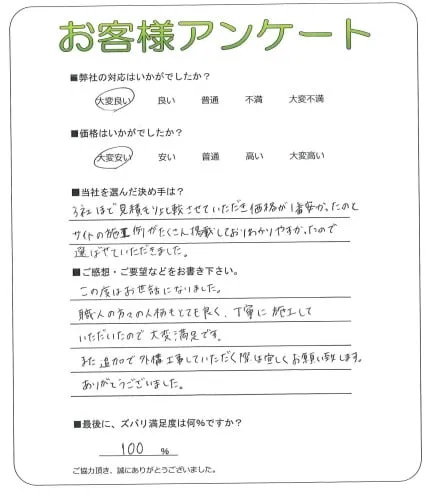 お客様アンケート
■弊社の対応はいかがでしたか？
大変良い 良い 普通 不満 大変不満
■価格はいかがでしたか？
大変安い 安い 普通 高い 大変高い
■当社を選んだ決め手は？
3社ほど見積もり比較させていただき価格が1番安かったのと
サイトの施工例がたくさん掲載しておりわかりやすかったので
選ばせていただきました。
■ご感想・ご要望などをお書き下さい。
この度はお世話になりました。
職人の方々の人柄もとても良く、丁寧に施工して
いただいたので大変満足です。
また追加で外構工事していただく際は宜しくお願い致します。
ありがとうございました。
■最後に、ズバリ満足度は何%ですか？
100 %
ご協力頂き、誠にありがとうございました。